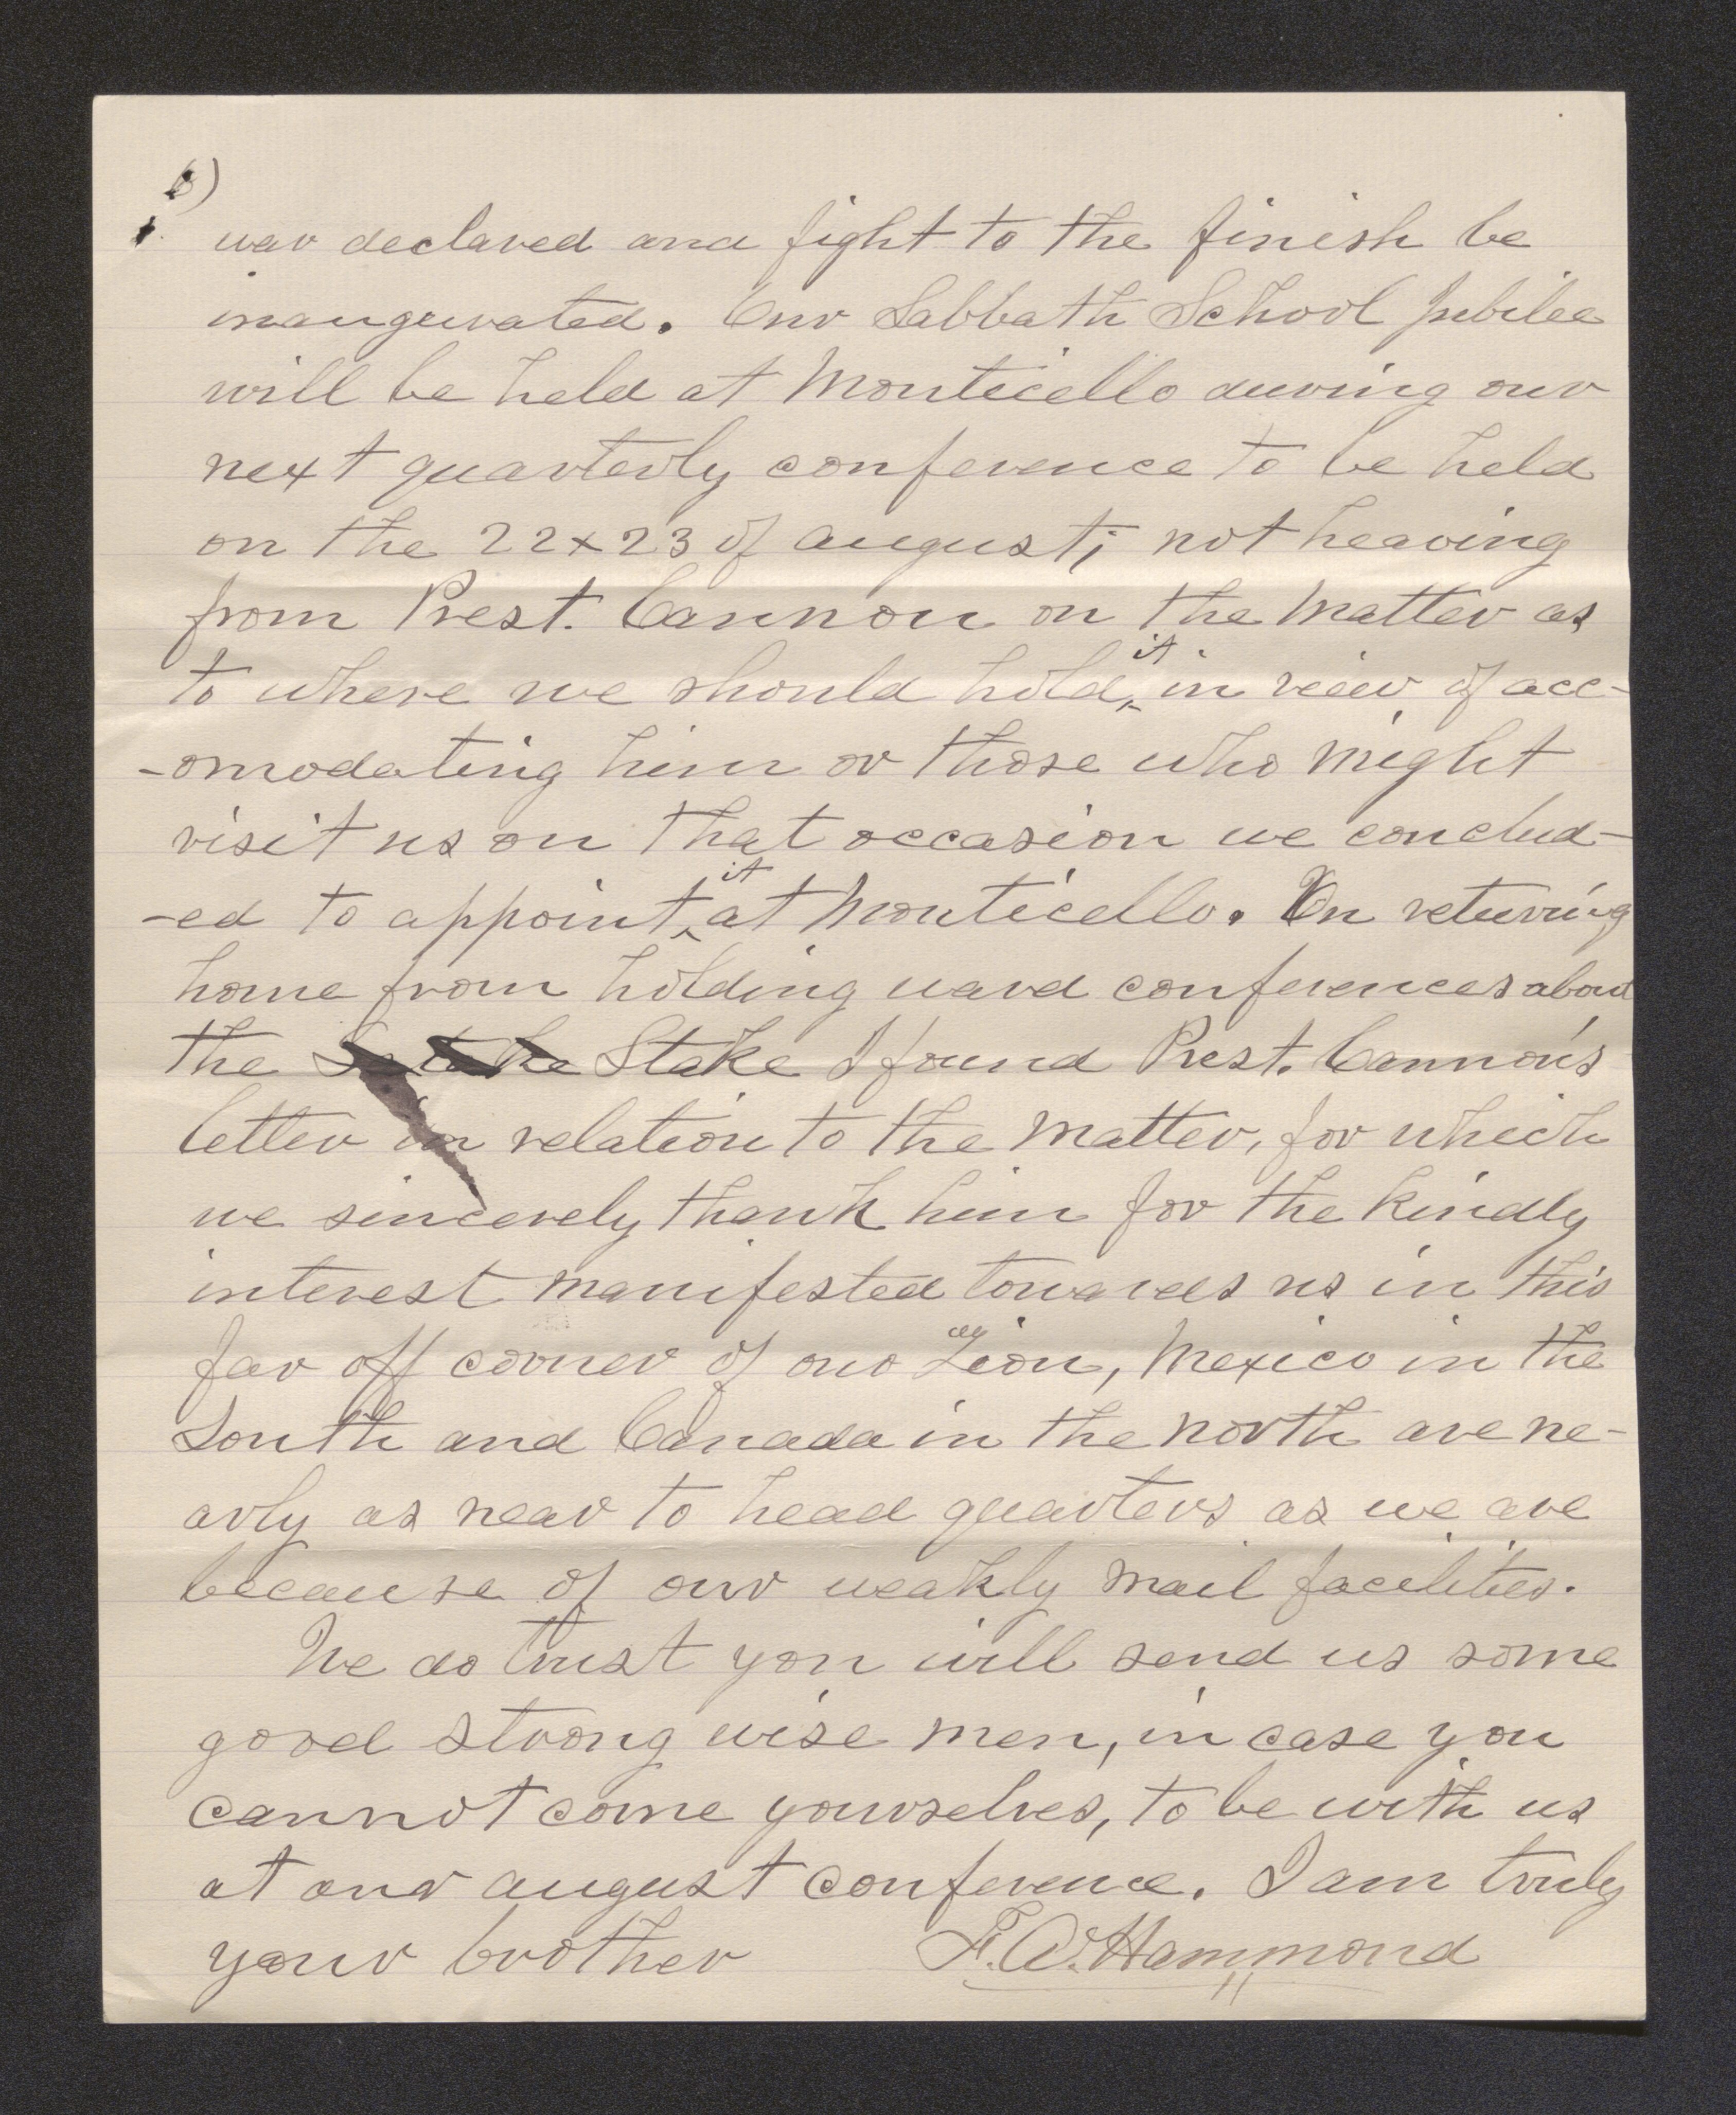 6)
war declared and fight to the finish be
inaugurated. Our Sabbath School Jubilee
will be held at Monticello during our
next quarterly conference to be held
on the 22 x 23 of august; not hearing
from Prest. Cannon on the matter as
to where we should hold it in view of acc-
-omodating him or those who might
visit us on that occasion we conclud-
-ed to appoint it at Monticello. On returing
home from holding ward conferences about
the Stake I found Prest. Cannon's
letter in relation to the matter, for which
we sincerely thank him for the kindly
interest manifested towards us in this
far off corner of our Zion, Mexico in the
South and Canada in the north are ne-
arly as near to head quarters as we are
because of our weakly mail facilities.
We do trust you will send us some
good strong wise men, in case you
cannot come yourselves, to be with us
at our august conference. I am truly
your brother F. A. Hammond